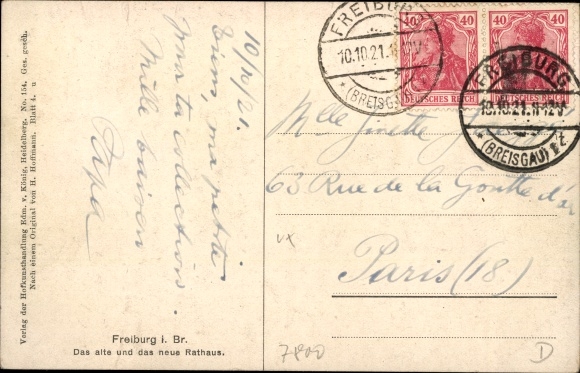 10/10/21.
ma petite
pour ta collection.
Mille baisers
Papa
Verlag der Hofkunsthandlung Edm. v. König, Heidelberg. No. 154. Ges. gesch.
Nach einem Original von H. Hoffmann. Blatt 4. u
Freiburg i. Br.
Das alte und das neue Rathaus.
FREIBURG
10.10.21.
(BREISGAU)
40 40
DEUTSCHES REICH
40 40
DEUTSCHES REICH
FREIBURG
10.10.21.11-12V
(BREISGAU) *2
Mlle Ginette
63 Rue de la Goutte d'or
Paris (18)
7800
D